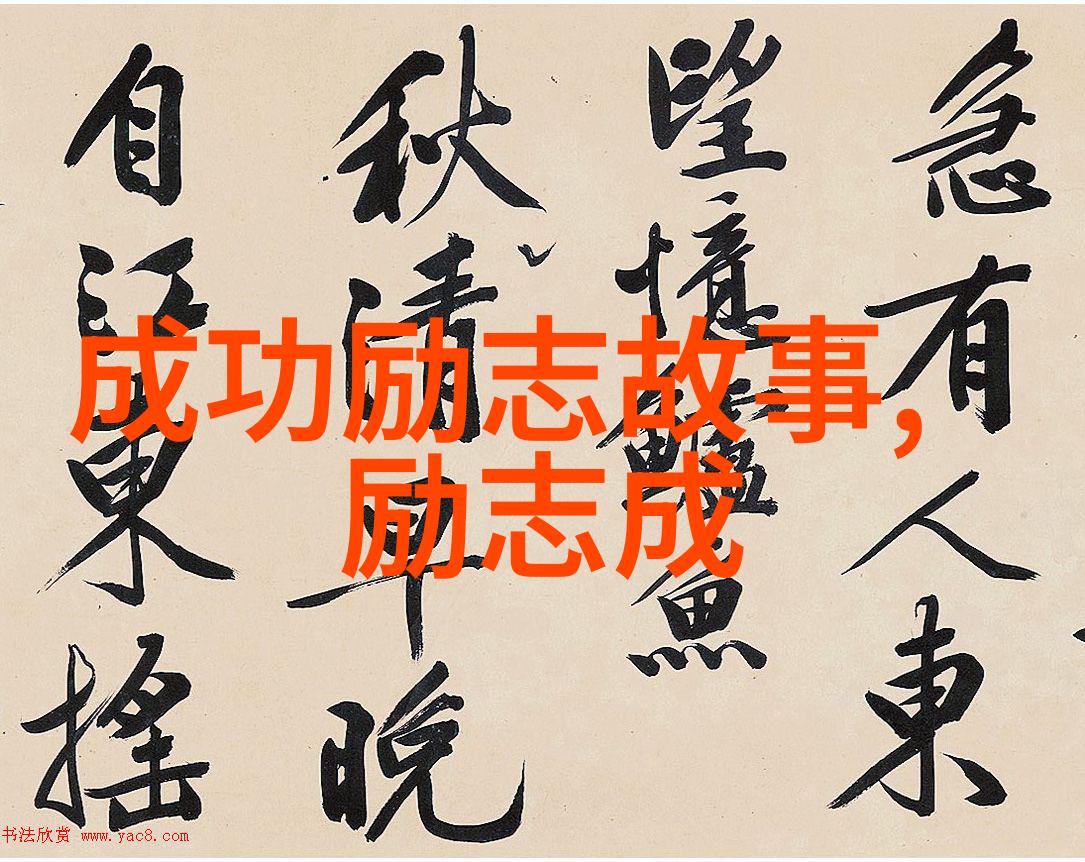 急有人東
望憶鱸魚
秋清早晚
自江東搖
成功励志故事,
励志成
书法欣赏 www.yac8.com